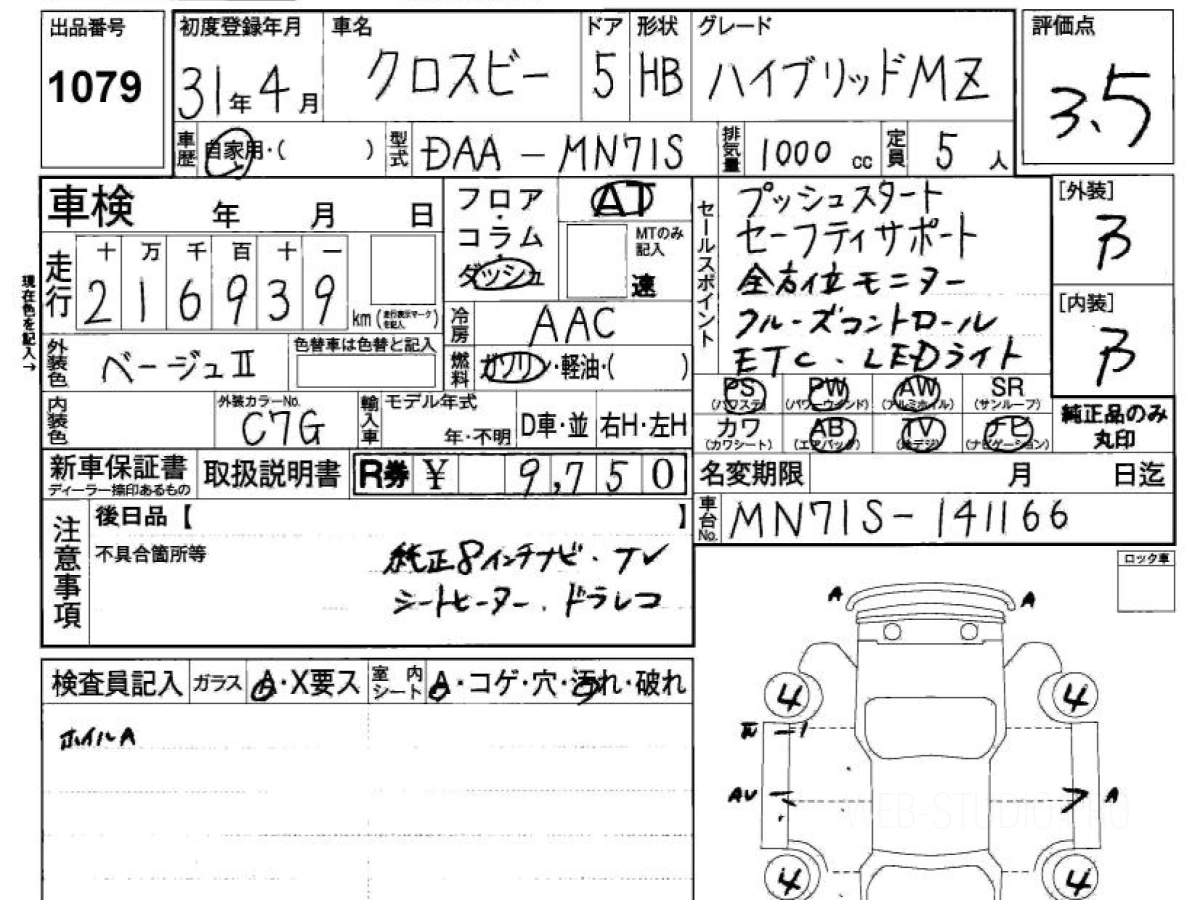 出品番号
1079
初度登録年月 車名 ドア 形状 グレード
31年4月 クロスビー 5 HB ハイブリッドMZ
評価点
3.5
車歴 自家用・( ) 型式 DAA-MN71S 排気量 1000cc 定員 5人
車検 年 月 日
フロア・コラム・ダッシュ
AT
MTのみ記入
速
セールスポイント
プッシュスタート
セーフティサポート
全方位モニター
クルーズコントロール
ETC・LEDライト
[外装]
B
[内装]
B
現在色を記入→
走行 十 万 千 百 十 一
216939 km(走行表示マークを記入)
冷房 AAC
外装色 ベージュⅡ 色替車は色替と記入
燃料 ガソリン・軽油・( )
PS (パワステ) PW (パワーウインド) AW (アルミホイル) SR (サンルーフ)
カワ (カワシート) AB (エアバッグ) TV (地デジ) ナビ (ナビゲーション)
純正品のみ
丸印
内装色 外装カラーNo. C7G 輸入車 モデル年式 年・不明 D車・並 右H・左H
新車保証書 ディーラー捺印あるもの 取扱説明書 R券 ¥ 9,750
名変期限 月 日迄
車台No. MN71S-141166
注意事項
後日品【 】
不具合箇所等
純正8インチナビ・TV
シートヒーター、ドラレコ
ロック車
検査員記入 ガラス A・X要ス 室内シート A・コゲ・穴・汚れ・破れ
ホイルA
A A
4 4
AU A
4 4
WEB-STUDIO.PRO